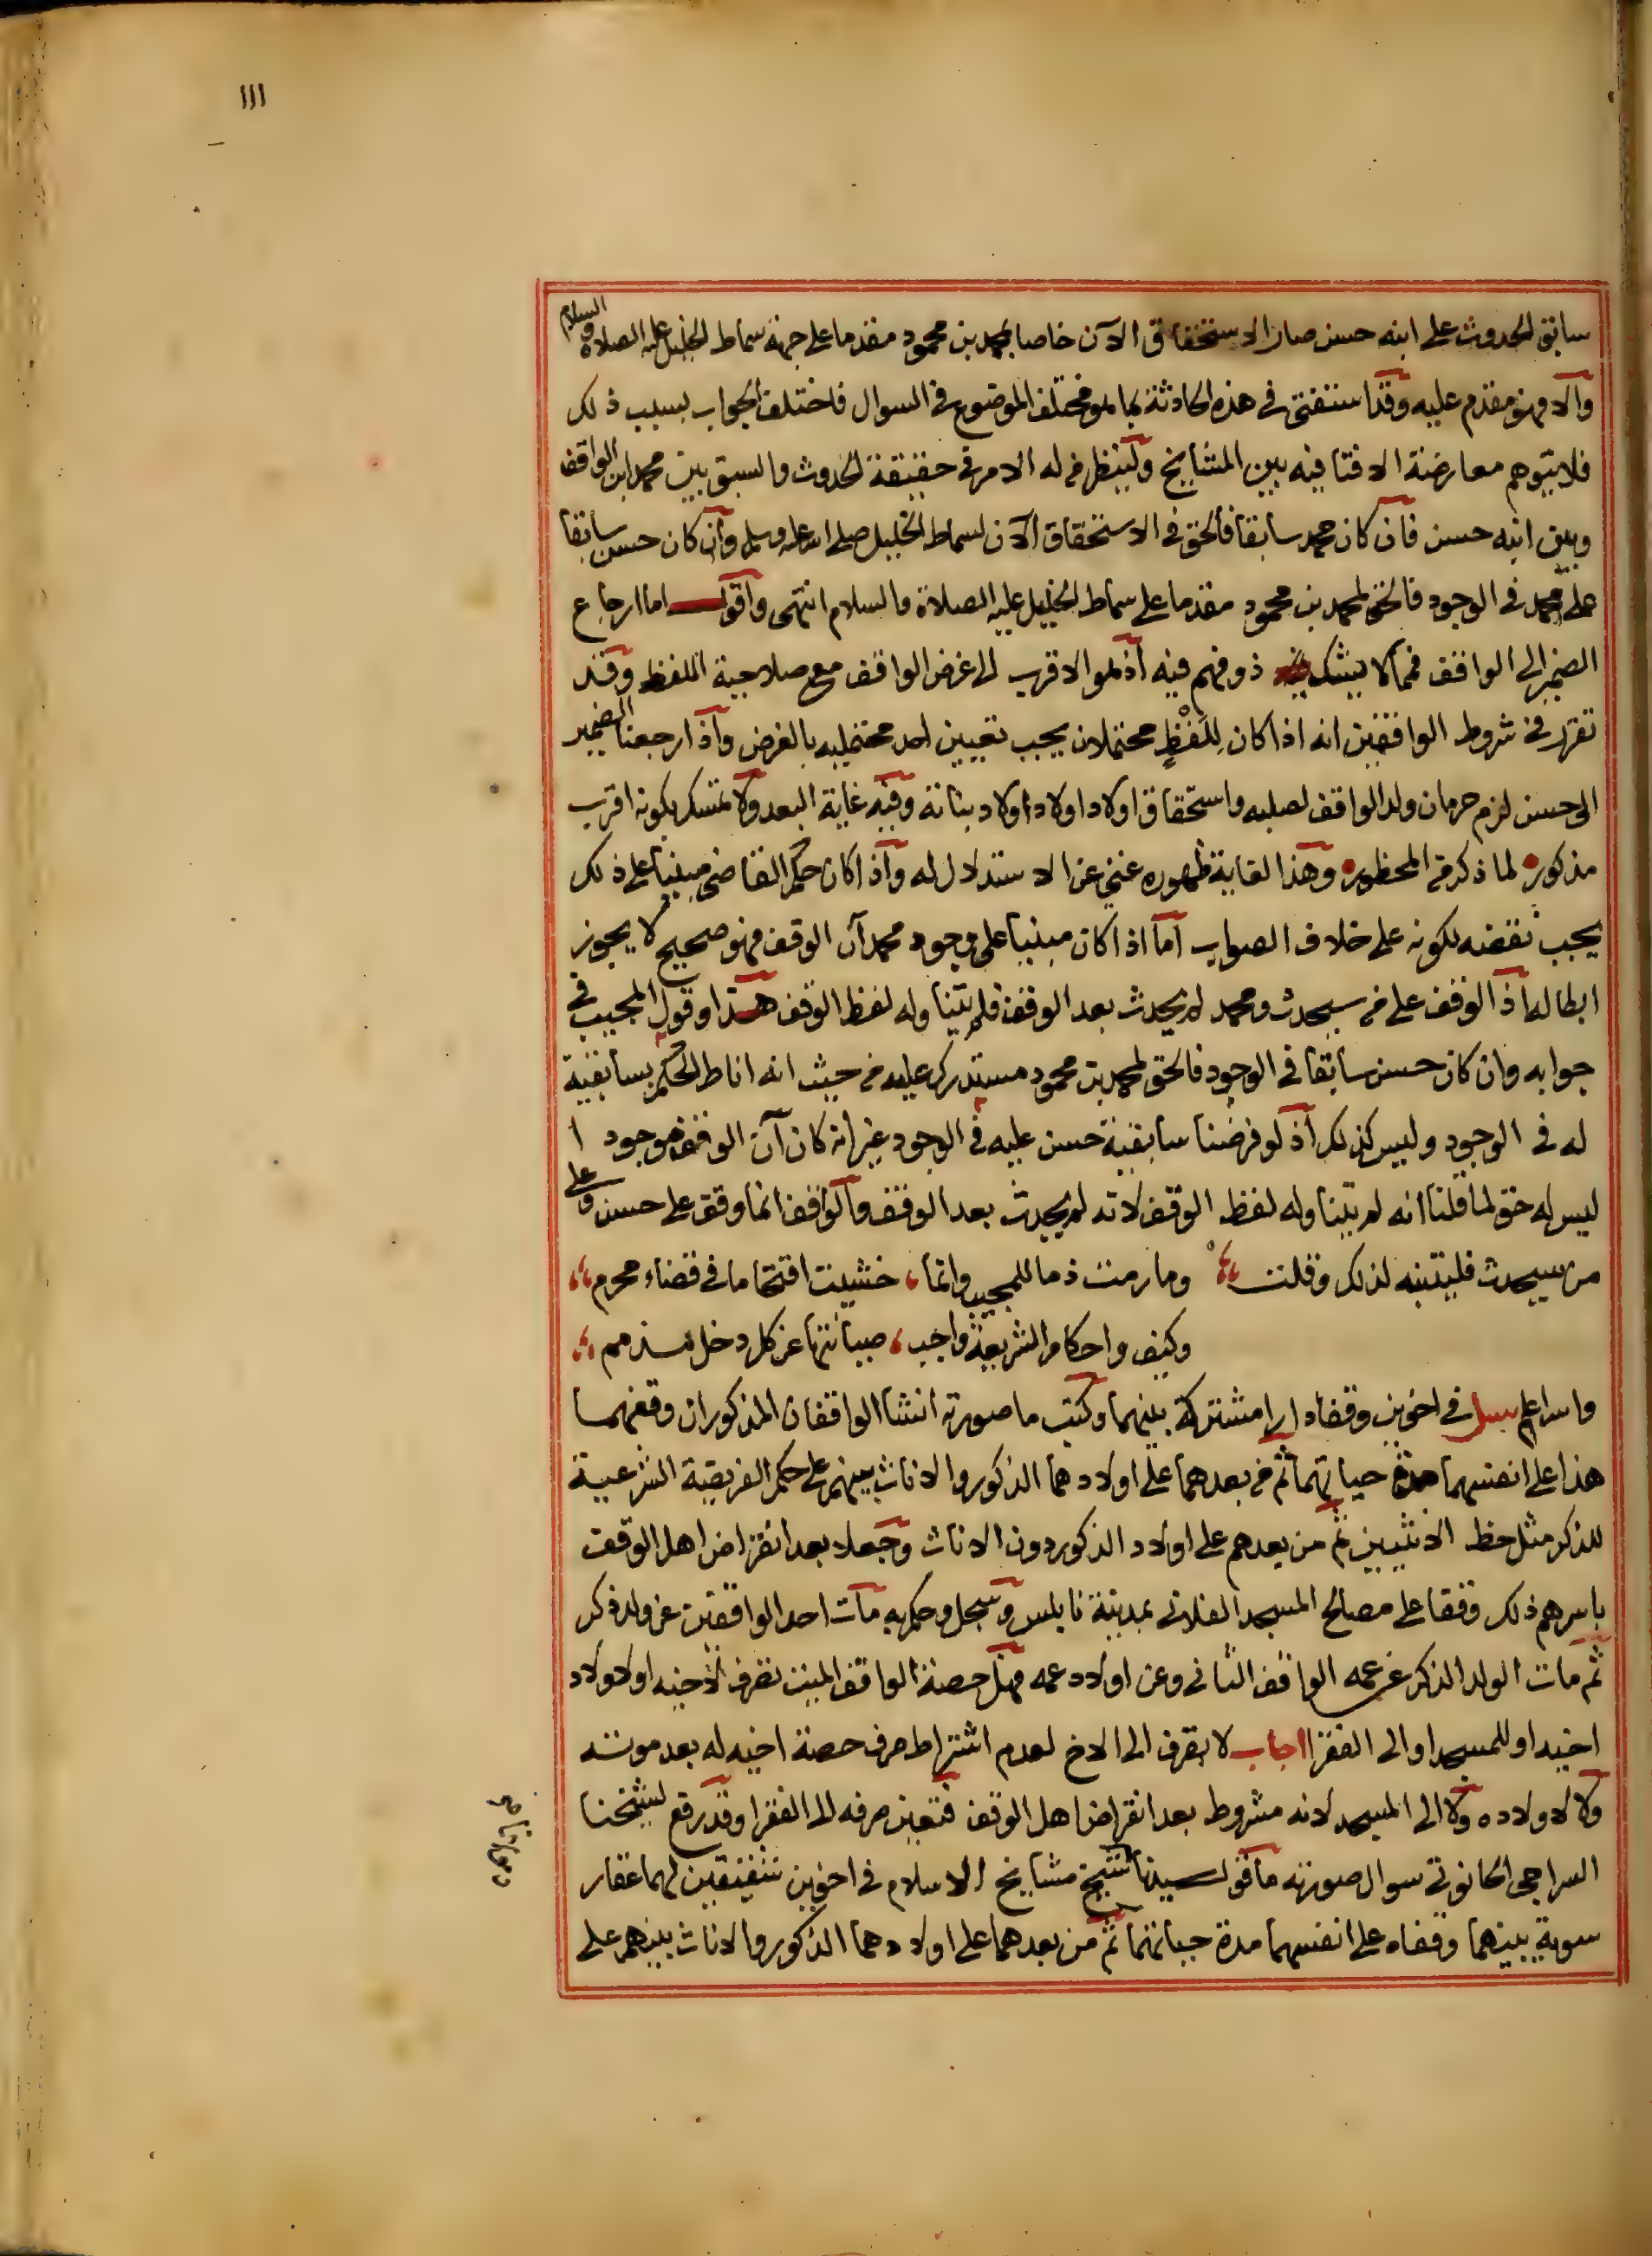 ١١١
سابق الحدوث على ابنه حسن صار الاستحقاق الآن خاصا بمحمد بن محمود مقدما على جهة سماط الخليل عليه الصلاة والسلام
والا فهو مقدم عليه وقد استفتى في هذه الحادثة بما هو مختلف الموضوع في السوال فاختلف الجواب بسبب ذلك
فلا يتوهم معارضة الافتا فيه بين المشايخ ولينظر من له الامر في حقيقة الحدوث والسبق بين محمد ابن الواقف
وبين ابنه حسن فان كان محمد سابقا فالحق في الاستحقاق الآن لسماط الخليل صلى الله عليه وسلم وان كان حسن سابقا
على محمد في الوجود فالحق لمحمد بن محمود مقدما على سماط الخليل عليه الصلاة والسلام انتهى واقول اما ارجاع
الضمير الى الواقف فمما لا يشك ذو فهم فيه اذ هو الاقرب الى غرض الواقف مع صلاحية اللفظ وقد
تقرر في شروط الواقفين انه اذا كان للفظ محتملان يجب تعيين احد محتمليه بالغرض واذا ارجعنا الضمير
الى حسن لزم حرمان ولد الواقف لصلبه واستحقاق اولاد اولاد اولاد بناته وفيه غاية البعد ولا تمسك بكونه اقرب
مذكور لما ذكر من المحظور وهذا لغاية ظهوره غني عن الاستدلال له واذا كان حكم القاضي مبنيا على ذلك
يجب نقضه لكونه على خلاف الصواب اما اذا كان مبنيا على وجود محمد آن الوقف فهو صحيح لا يجوز
ابطاله اذ الوقف على من سيحدث ومحمد لم يحدث بعد الوقف فلم يتناوله لفظ الوقف هذا وقول المجيب في
جوابه وان كان حسن سابقا في الوجود فالحق لمحمد بن محمود مستدرك عليه من حيث انه اناط الحكم بسابقية
له في الوجود وليس كذلك اذ لو فرضنا سابقية حسن عليه في الوجود غير انه كان آن الوقف موجودا
ليس له حق لما قلنا انه لم يتناوله لفظ الوقف لانه لم يحدث بعد الوقف والواقف انما وقف على حسن وعلى
من سيحدث فليتنبه لذلك وقلت وما رمت ذما للمجيب وانما خشيت اقتحاما في قضاء محرم
وكيف واحكام الشريعة واجب صيانتها عن كل دخل مذمم
والله اعلم سئل في اخوين وقفا دارا مشتركة بينهما وكتب ما صورته انشا الواقفان المذكوران وقفهما
هذا على انفسهما مدة حياتهما ثم من بعدهما على اولادهما الذكور والاناث بينهم على حكم الفريضة الشرعية
للذكر مثل حظ الانثيين ثم من بعدهم على اولاد الذكور دون الاناث وجعلا بعد انقراض اهل الوقف
باسرهم ذلك وقفا على مصالح المسجد الفلاني بمدينة نابلس وسجل وحكم به مات احد الواقفين عن ولد ذكر
ثم مات الولد الذكر عن عمه الواقف الثاني وعن اولاد عمه فهل حصة الواقف الميت تصرف لاخيه او لاولاد
اخيه او للمسجد او الى الفقرا اجاب لا تصرف الى الاخ لعدم اشتراط صرف حصة اخيه له بعد موته
ولا لاولاده ولا الى المسجد لانه مشروط بعد انقراض اهل الوقف فتعين صرفه الى الفقرا وقد رفع لشيخنا
السراجي الحانوتي سوال صورته ما قول سيدنا شيخ مشايخ الاسلام في اخوين شقيقين لهما عقار
سوية بينهما وقفاه على انفسهما مدة حياتهما ثم من بعدهما على اولادهما الذكور والاناث بينهم على